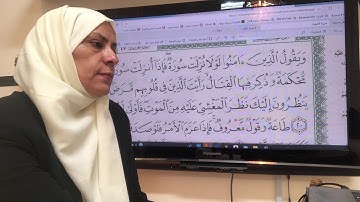 وَيَقُولُ الَّذِينَ ءَامَنُوا لَوْلَا نُزِّلَتْ سُورَةٌ فَإِذَا أُنزِلَتْ سُورَةٌ
مُّحْكَمَةٌ وَذُكِرَ فِيهَا الْقِتَالُ رَأَيْتَ الَّذِينَ فِي قُلُوبِهِم مَّرَضٌ
يَنظُرُونَ إِلَيْكَ نَظَرَ الْمَغْشِيِّ عَلَيْهِ مِنَ الْمَوْتِ فَأَوْلَىٰ
٢٠ طَاعَةٌ وَقَوْلٌ مَّعْرُوفٌ فَإِذَا عَزَمَ الْأَمْرُ فَلَوْ صَدَ
Panasonic